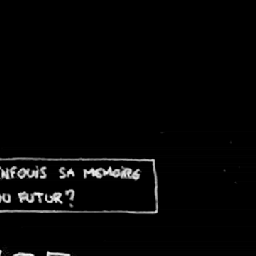 ENFOUIS SA MEMOIRE
OU FUTUR?